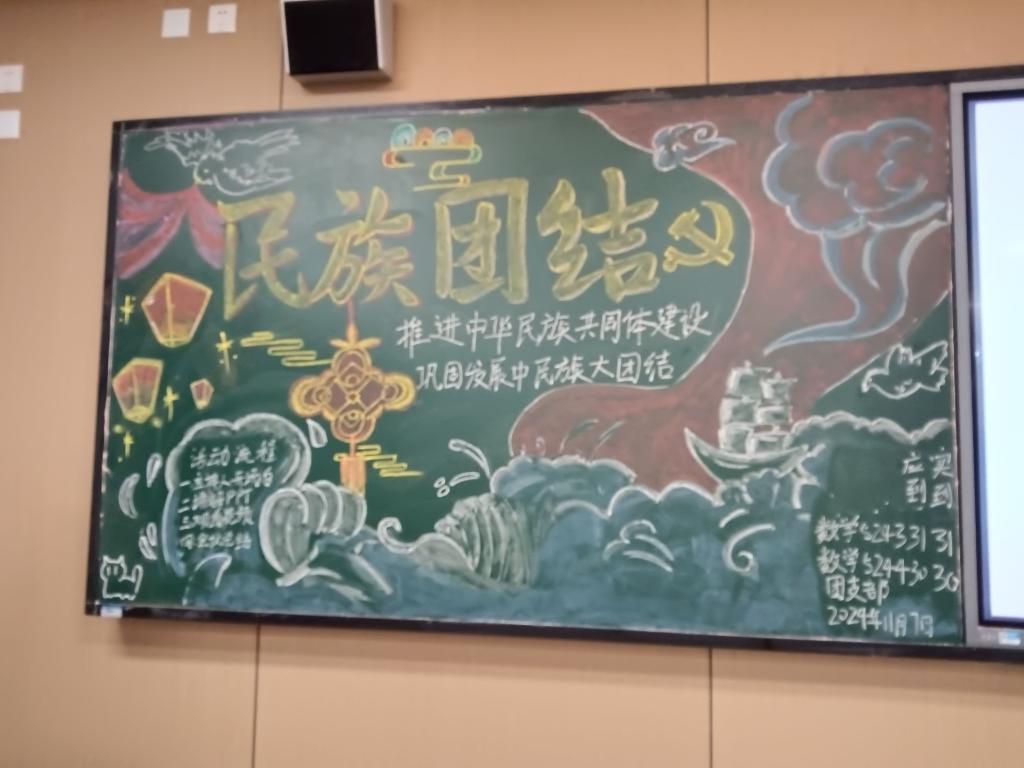 民族团结
推进中华民族共同体建设
巩固发展中民族大团结
活动流程
一主持人开场白
二讲解PPT
三观看视频
四全体总结
应 实
到 到
数学S243 31 31
数学S244 30 30
团支部
2024年11月7日